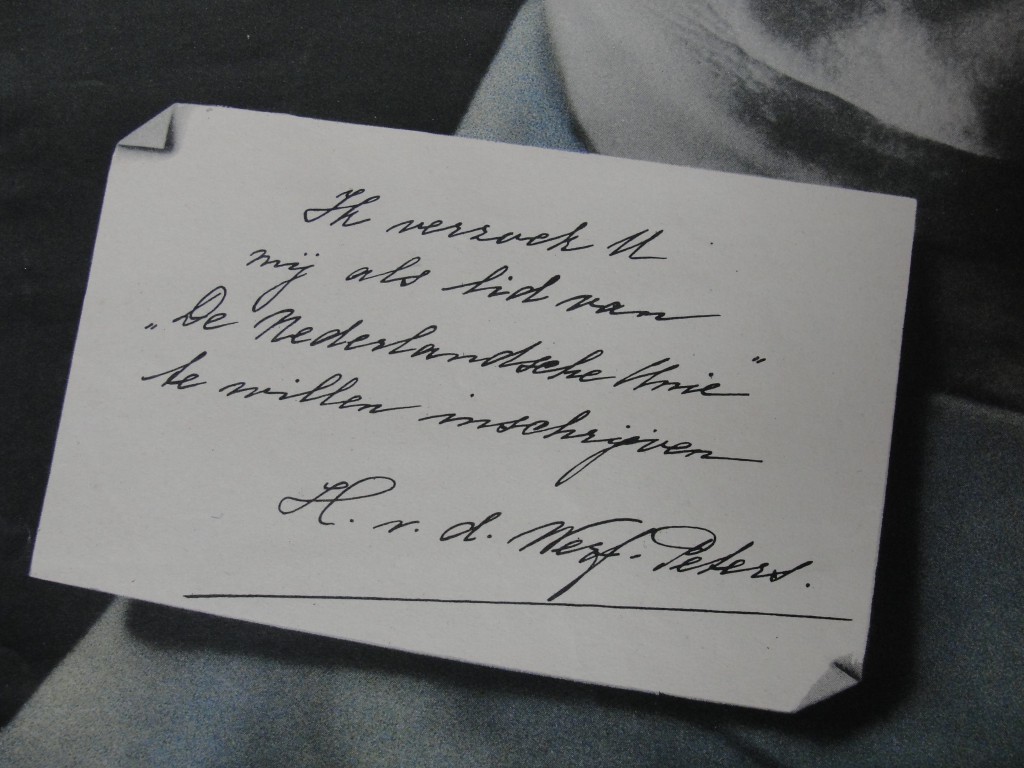 Ik verzoek U
mij als lid van
„De Nederlandsche Unie”
te willen inschrijven
H. v. d. Werf-Peters.